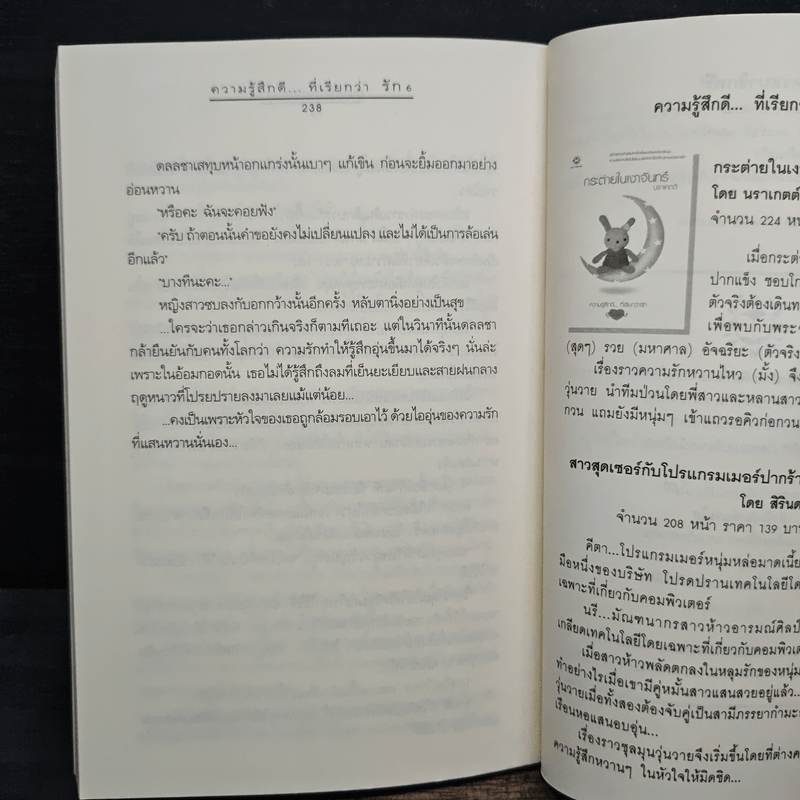 ความรู้สึกดี... ที่เรียกว่า รัก 6
238
ดลลชาเสทุบหน้าอกแกร่งนั้นเบาๆ แก้เขิน ก่อนจะยิ้มออกมาอย่าง
อ่อนหวาน
"หรือคะ ฉันจะคอยฟัง"
"ครับ ถ้าตอนนั้นคำขอยังคงไม่เปลี่ยนแปลง และไม่ได้เป็นการล้อเล่น
อีกแล้ว"
"บางทีนะคะ..."
หญิงสาวซบลงกับอกกว้างนั้นอีกครั้ง หลับตานิ่งอย่างเป็นสุข
...ใครจะว่าเธอกล่าวเกินจริงก็ตามทีเถอะ แต่ในวินาทีนั้นดลลชา
กล้ายืนยันกับคนทั้งโลกว่า ความรักทำให้รู้สึกอุ่นขึ้นมาได้จริงๆ นั่นล่ะ
เพราะในอ้อมกอดนั้น เธอไม่ได้รู้สึกถึงลมที่เย็นยะเยียบและสายฝนกลาง
ฤดูหนาวที่โปรยปรายลงมาเลยแม้แต่น้อย...
...คงเป็นเพราะหัวใจของเธอถูกล้อมรอบเอาไว้ ด้วยไออุ่นของความรัก
ที่แสนหวานนั่นเอง...
ความรู้สึกดี... ที่เรียก
กระต่ายในเงาจันทร์
นราเกตต์
กระต่ายในเง
โดย นราเกตต์
จำนวน 224 หน
เมื่อกระต่
ปากแข็ง ชอบโก
ตัวจริงต้องเดินท
เพื่อพบกับพระ
(สุดๆ) รวย (มหาศาล) อัจฉริยะ (ตัวจริง
เรื่องราวความรักหวานไหว (มั้ง) จึง
วุ่นวาย นำทีมป่วนโดยพี่สาวและหลานสาว
กวน แถมยังมีหนุ่มๆ เข้าแถวรอคิวก่อกวน
สาวสุดเซอร์กับโปรแกรมเมอร์ปากร้า
โดย สิรินด
จำนวน 208 หน้า ราคา 139 บา
คีตา...โปรแกรมเมอร์หนุ่มหล่อมาดเนี้ย
มือหนึ่งของบริษัท โปรดปรานเทคโนโลยีโด
เฉพาะที่เกี่ยวกับคอมพิวเตอร์
นรี...มัณฑนากรสาวห้าวอารมณ์ศิลป์
เกลียดเทคโนโลยีโดยเฉพาะที่เกี่ยวกับคอมพิวเต
เมื่อสาวห้าวพลัดตกลงในหลุมรักของหนุ่ม
ทำอย่างไรเมื่อเขามีคู่หมั้นสาวแสนสวยอยู่แล้ว...
วุ่นวายเมื่อทั้งสองต้องจับคู่เป็นสามีภรรยากำมะ
เรือนหอแสนอบอุ่น...
เรื่องราวชุลมุนวุ่นวายจึงเริ่มขึ้นโดยที่ต่างค
ความรู้สึกหวานๆ ในหัวใจให้มิดชิด...